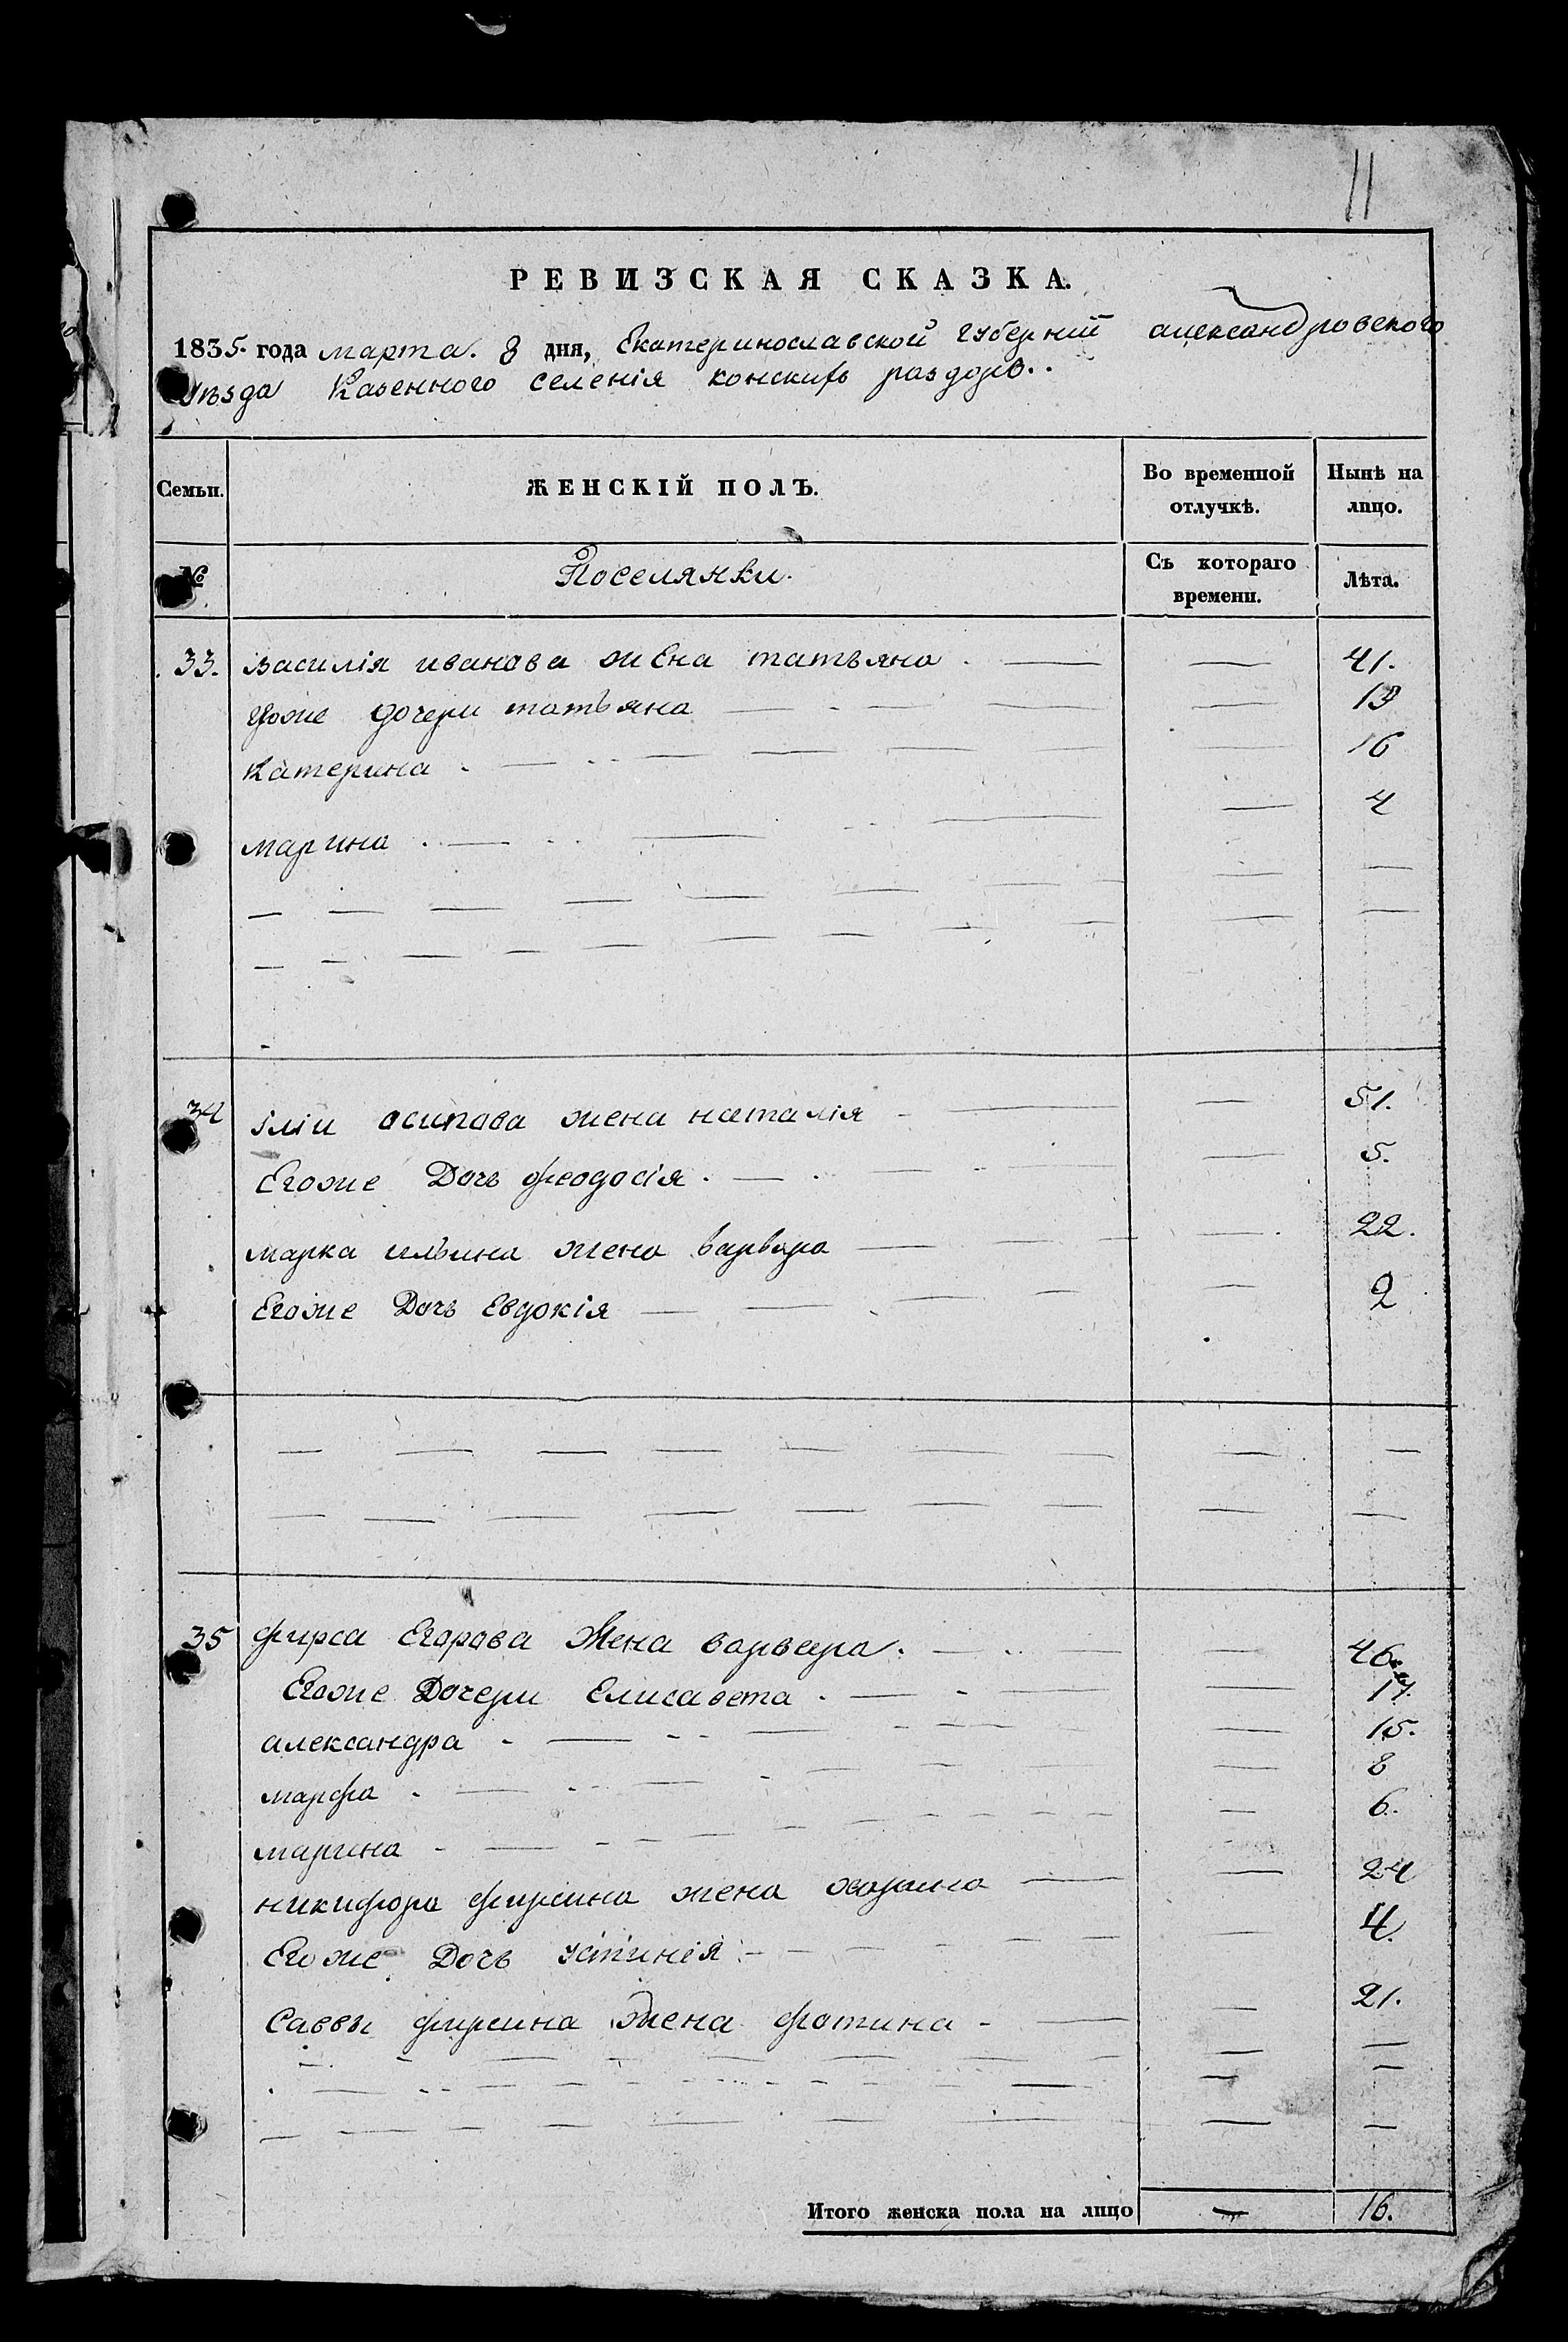 11
РЕВИЗСКАЯ СКАЗКА.
1835. года марта. 8 дня, Екатеринославской Губерніи александровского
Уѣзда Казенного селенія конскихъ раздоръ..
Семьи. ЖЕНСКІЙ ПОЛЪ. Во временной отлучкѣ. Нынѣ на лицо.
№ Поселянки. Съ котораго времени. Лѣта.
33. василія иванова жена татьяна 41.
Егоже дочери татьяна 19
катерина 16
марина 4
34 іліи осипова жена наталія 51.
Егоже Дочь феодосія 5.
марка ильина жена варвара 22.
Егоже Дочь Евдокія 2
35 фирса Егорова Жена варвара. 46.
Егоже Дочери Елисавета 17.
александра 15.
марфа 8
марина 6.
никифора фирсина жена 24
Егоже Дочь устинія 4.
Саввы фирсина Жена фотина 21.
Итого женска пола на лицо — 16.